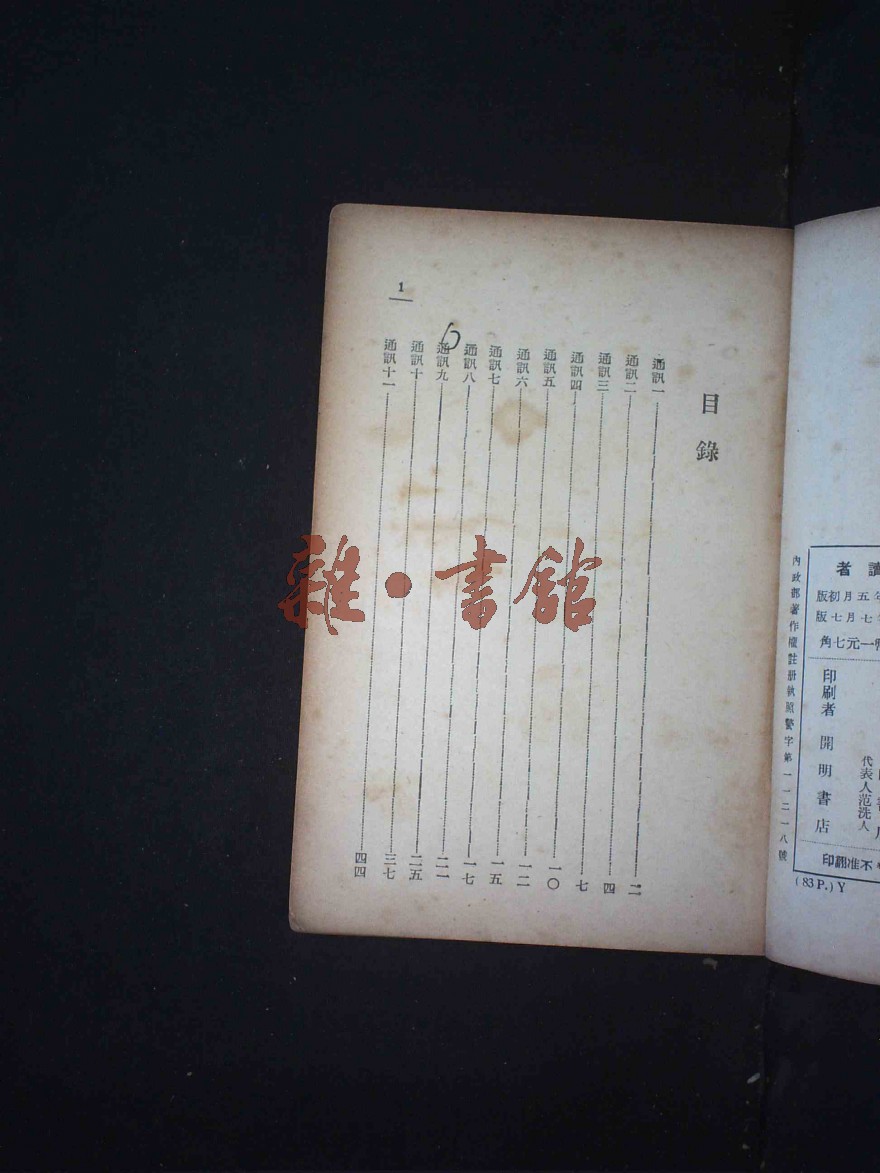 目錄
通訊一 二
通訊二 四
通訊三 七
通訊四 一〇
通訊五 一二
通訊六 一五
通訊七 一七
通訊八 二一
通訊九 二五
通訊十 三七
通訊十一 四四
1
讀者
年五月初版
年七月七版
一元七角
代表人范洗人
印刷者 開明書店
不准翻印
內政部著作權註册執照警字第一一二一八號
(83 P.) Y
雜·書館